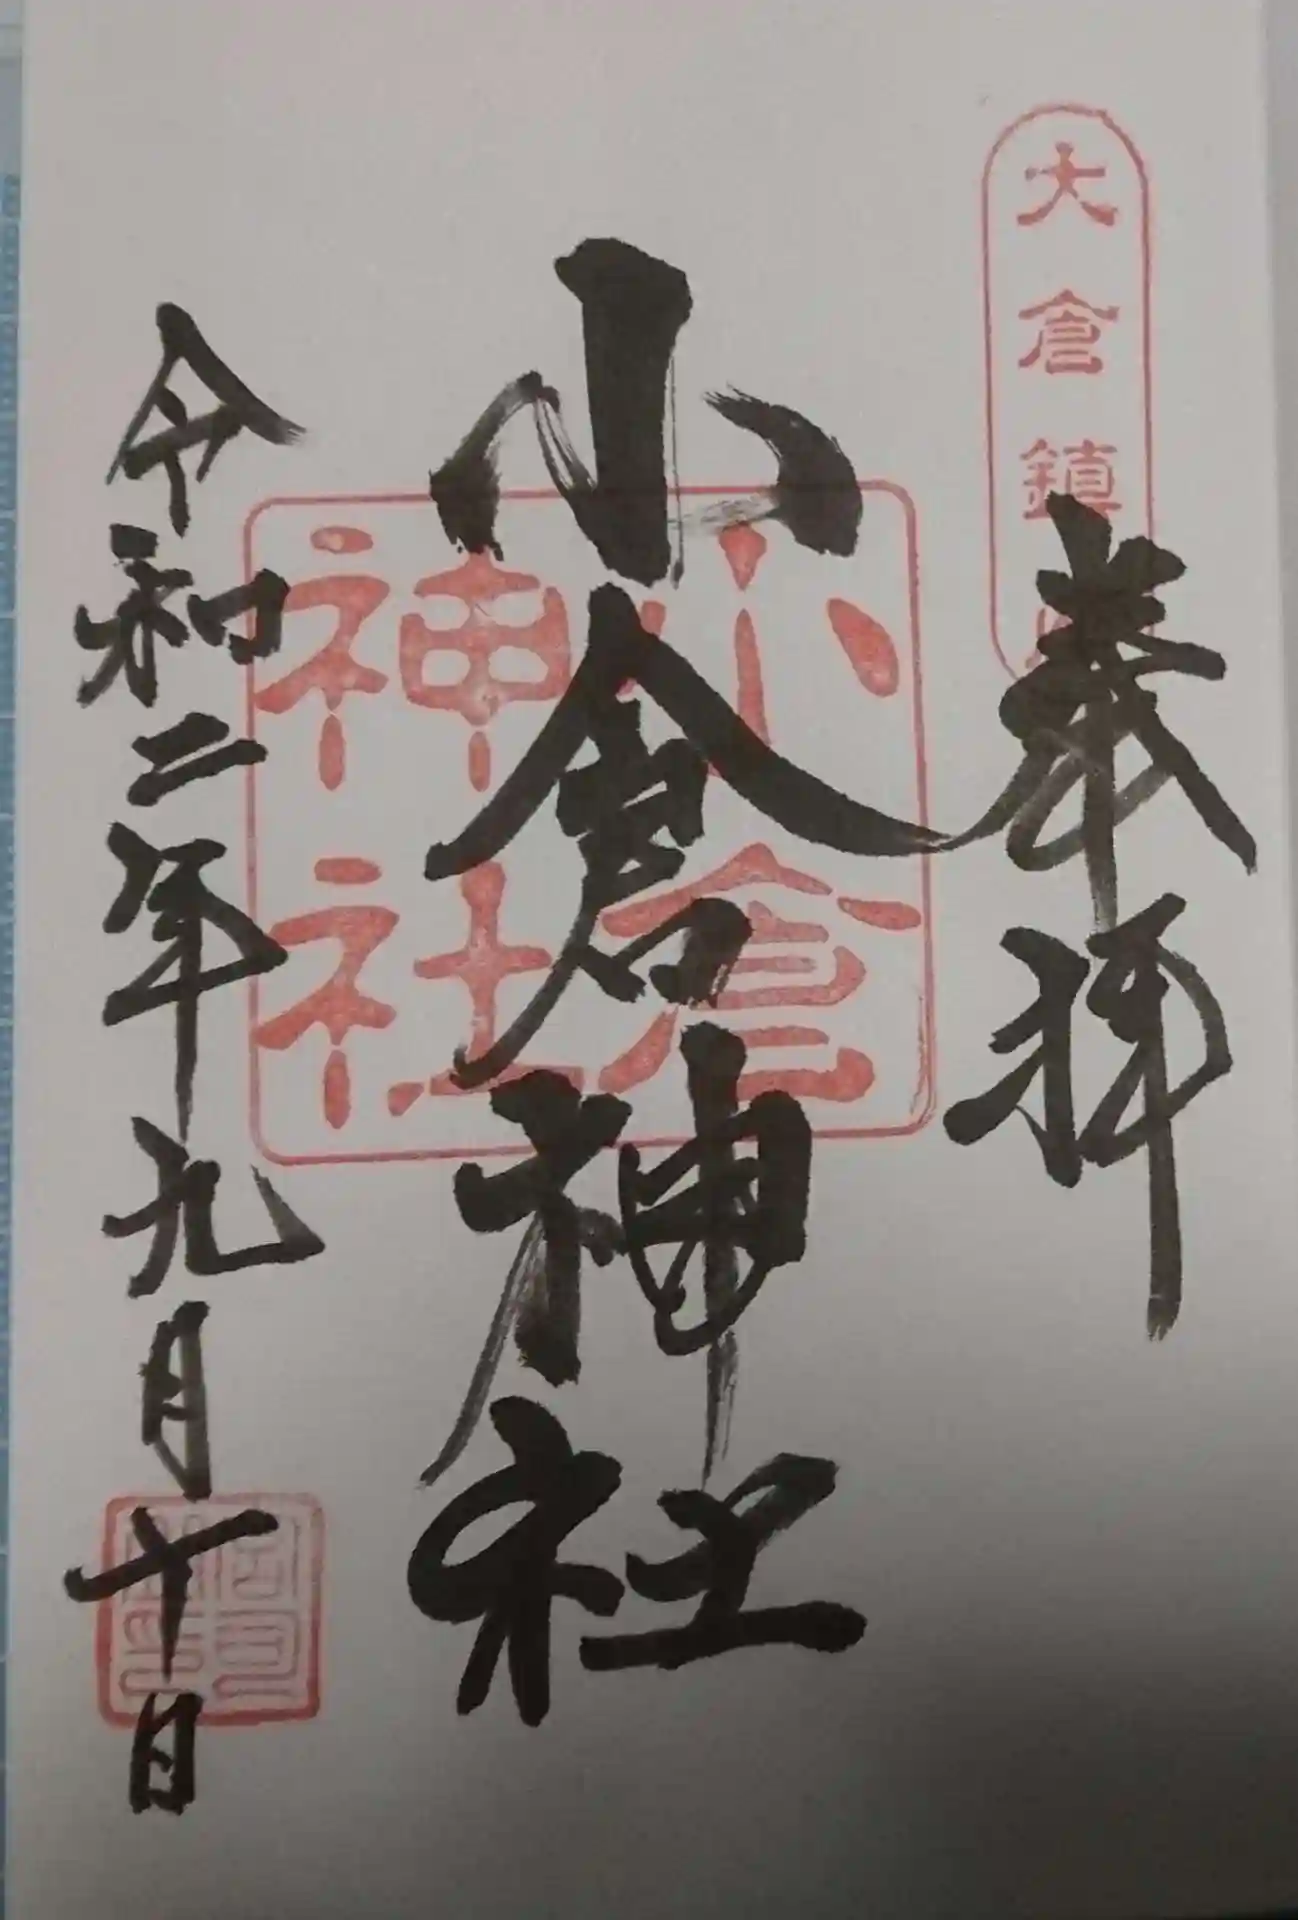 大倉鎮
奉拝
小倉神社
小倉神社
令和二年九月十日